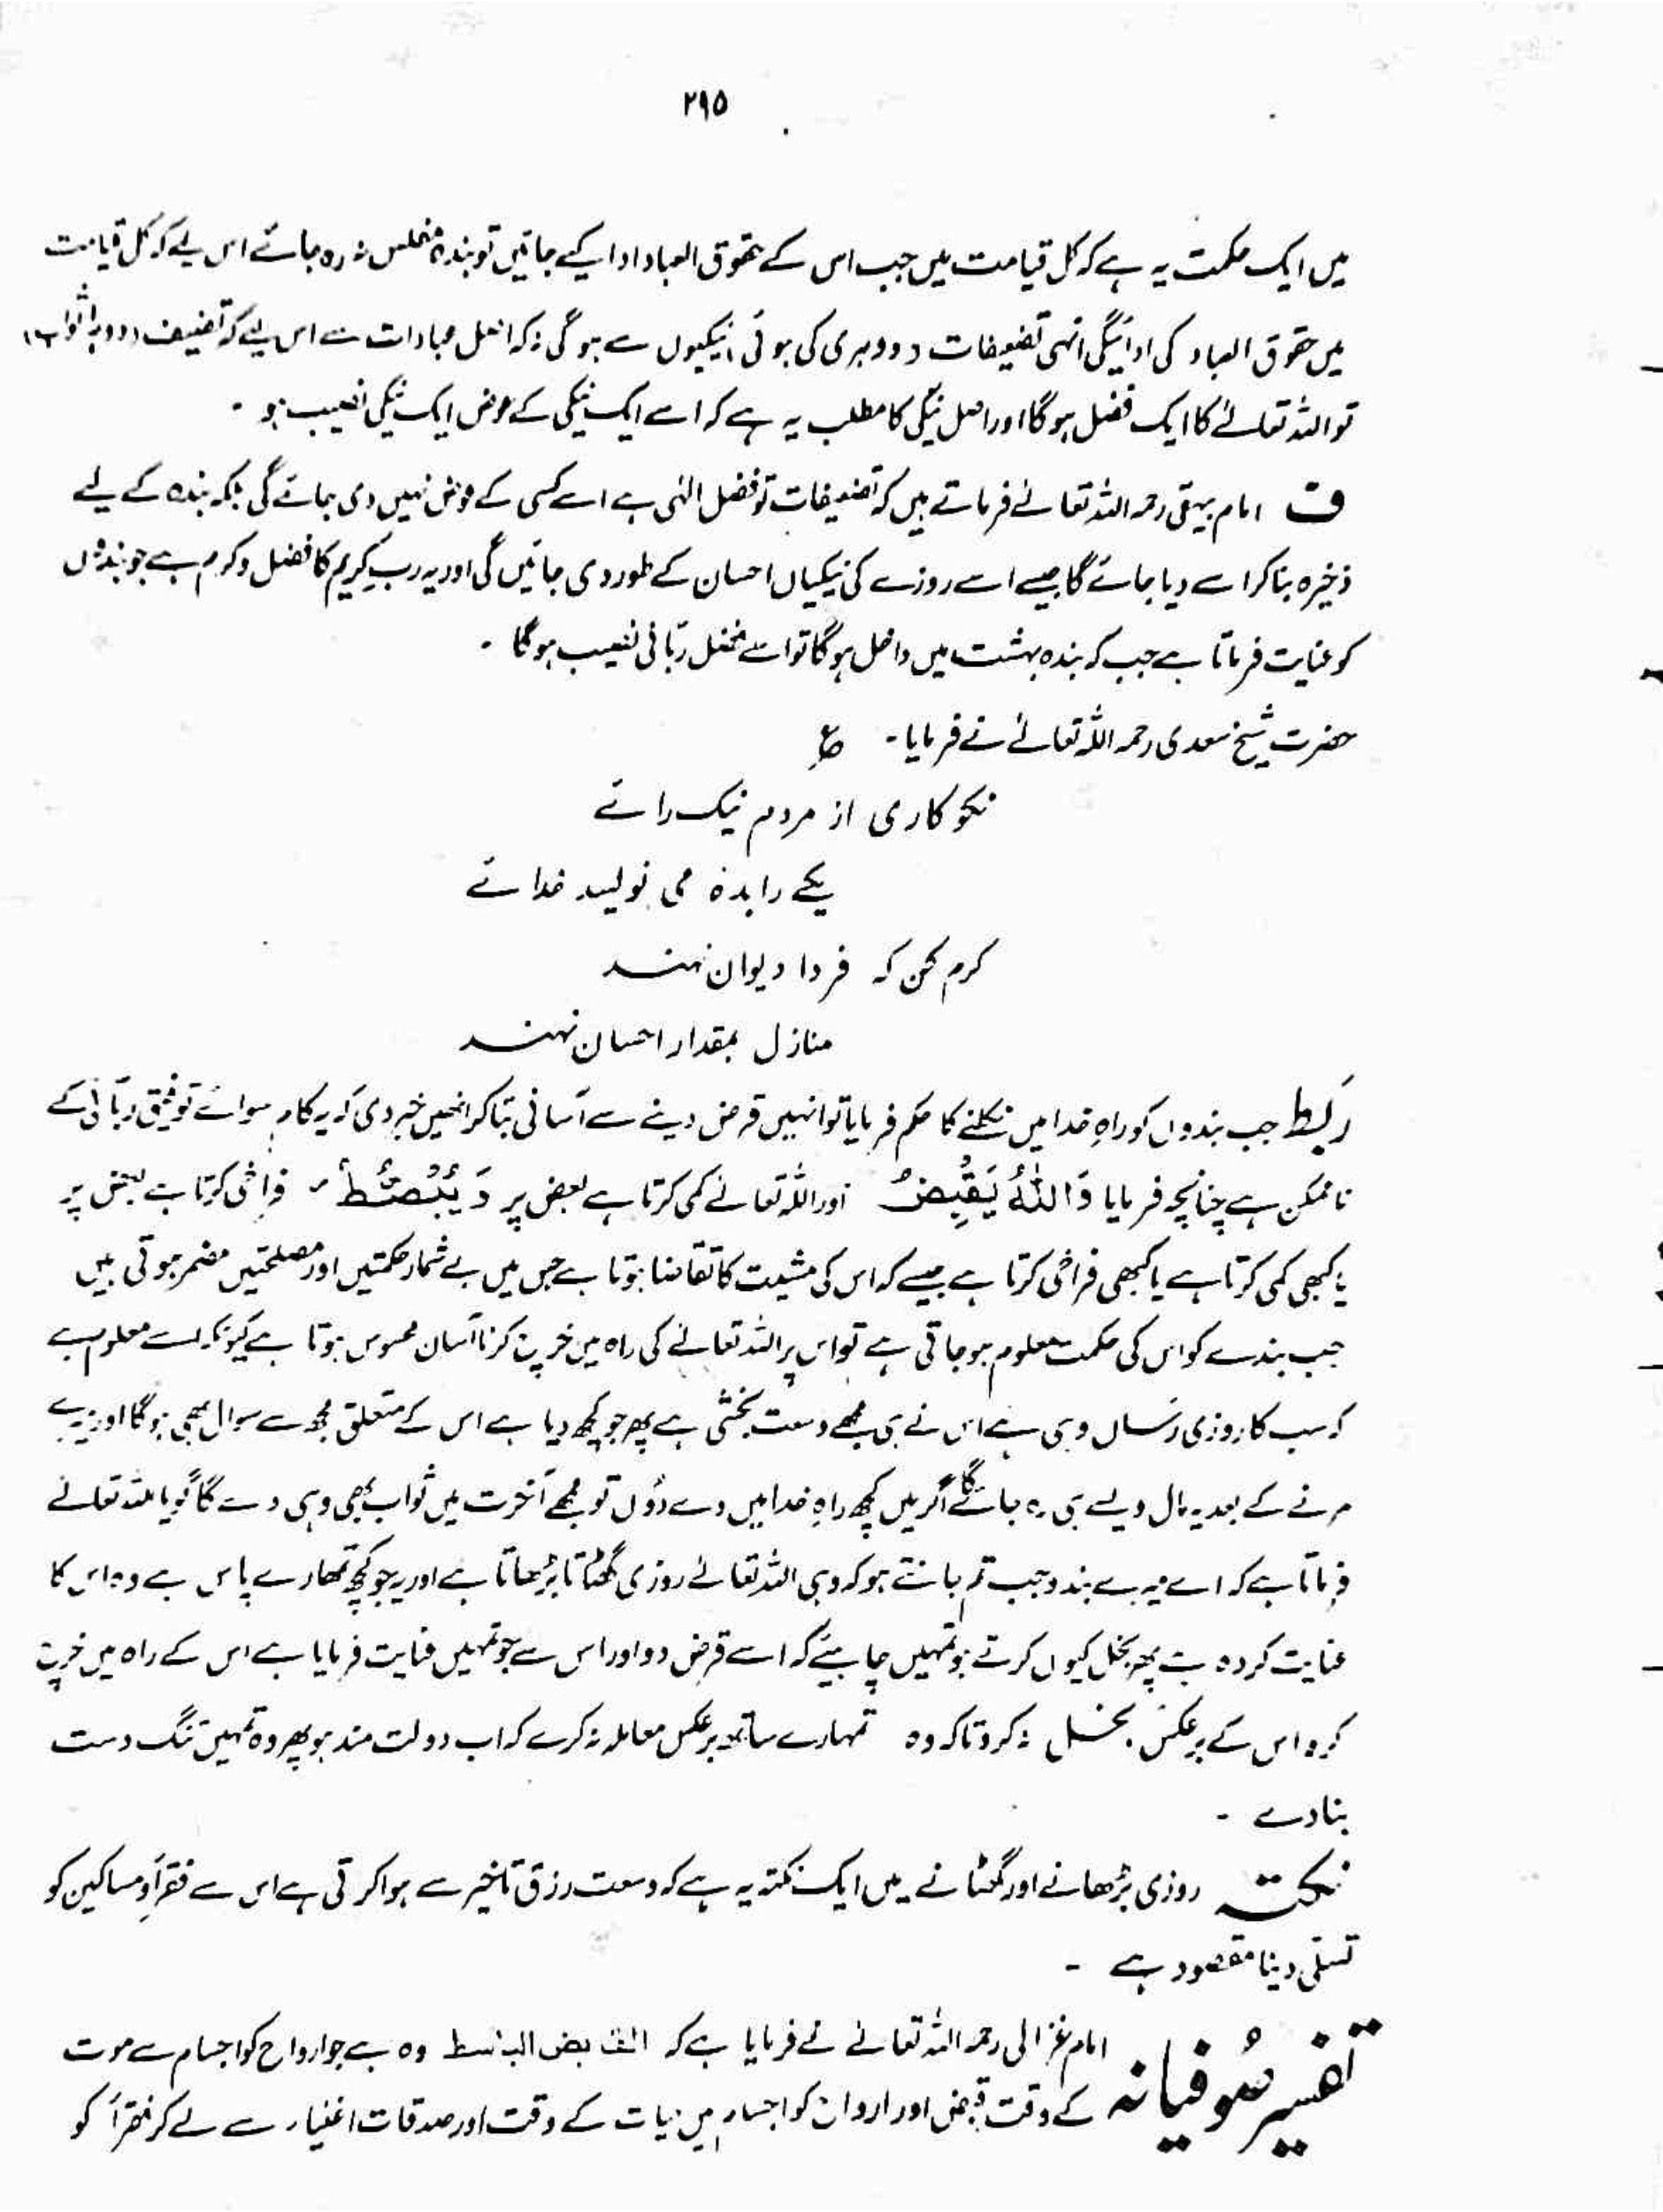 ۲۹۵
میں ایک حکمت یہ ہے کہ کل قیامت میں جب اس کے حقوق العباد ادا کیے جائیں تو بندہ مفلس نہ رہ جائے اس لیے کہ کل قیامت
میں حقوق العباد کی ادائیگی انہی تضعیفات (دوہری کی ہوئی) نیکیوں سے ہوگی نہ کہ اصل عبادات سے اس لیے کہ تضعیف (دوہرا ثواب)
تو اللہ تعالےٰ کا ایک فضل ہوگا اور اصل نیکی کا مطلب یہ ہے کہ اسے ایک نیکی کے عوض ایک نیکی نصیب ہو ۔
ف امام بیہقی رحمہ اللہ تعالےٰ فرماتے ہیں کہ تضعیفات تو فضل الٰہی ہے اسے کسی کے عوض نہیں دی جائے گی بلکہ بندہ کے لیے
ذخیرہ بنا کر اسے دیا جائے گا جیسے اسے روزے کی نیکیاں احسان کے طور دی جائیں گی اور یہ رب کریم کا فضل و کرم ہے جو بندوں
کو عنایت فرماتا ہے جب کہ بندہ بہشت میں داخل ہوگا تو اسے فضل ربّانی نصیب ہوگا ۔
حضرت شیخ سعدی رحمہ اللہ تعالےٰ نے فرمایا ۔
نکو کاری از مردم نیک رائے
یکے را بدہ می نویسد خدائے
کرم کن کہ فردا دیوان نہند
منازل بمقدار احسان نہند
ربط جب بندوں کو راہِ خدا میں نکلنے کا حکم فرمایا تو انہیں قرض دینے سے آسانی بتا کر انھیں خبر دی کہ یہ کام سوائے توفیق ربّانی کے
ناممکن ہے چنانچہ فرمایا وَاللّٰهُ يَقْبِضُ اور اللہ تعالےٰ کمی کرتا ہے بعض پر وَيَبْصُۜطُ فراخی کرتا ہے بعض پر
یا کبھی کمی کرتا ہے یا کبھی فراخی کرتا ہے جیسے کہ اس کی مشیت کا تقاضا ہوتا ہے جس میں بے شمار حکمتیں اور مصلحتیں مضمر ہوتی ہیں
جب بندے کو اس کی حکمت معلوم ہو جاتی ہے تو اس پر اللہ تعالےٰ کی راہ میں خرچ کرنا آسان محسوس ہوتا ہے کیونکہ اسے معلوم ہے
کہ سب کا روزی رساں وہی ہے اس نے ہی مجھے وسعت بخشی ہے پھر جو کچھ دیا ہے اس کے متعلق مجھ سے سوال بھی ہوگا اور میرے
مرنے کے بعد یہ مال ویسے ہی رہ جائے گا اگر میں کچھ راہِ خدا میں دے دوں تو مجھے آخرت میں ثواب بھی وہی دے گا گویا اللہ تعالےٰ
فرماتا ہے کہ اے میرے بندو جب تم جانتے ہو کہ وہی اللہ تعالےٰ روزی گھٹاتا بڑھاتا ہے اور یہ جو کچھ تمھارے پاس ہے وہ اس کا
عنایت کردہ ہے پھر بخل کیوں کرتے ہو تمہیں چاہیئے کہ اسے قرض دو اور اس سے جو تمہیں عنایت فرمایا ہے اس کے راہ میں خرچ
کرو اس کے برعکس بخل نہ کرو تاکہ وہ تمہارے ساتھ برعکس معاملہ نہ کرے کہ اب دولت مند ہو پھر وہ تمہیں تنگ دست
بنا دے ۔
نکتہ روزی بڑھانے اور گھٹانے میں ایک نکتہ یہ ہے کہ وسعت رزق تاخیر سے ہوا کرتی ہے اس سے فقرأ و مساکین کو
تسلّی دینا مقصود ہے ۔
تفسیر صُوفیانہ امام غزالی رحمہ اللہ تعالےٰ نے فرمایا ہے کہ القابض الباسط وہ ہے جو ارواح کو اجسام سے موت
کے وقت قبض اور ارواح کو اجسام میں حیات کے وقت اور صدقات اغنیاء سے لے کر فقرأ کو